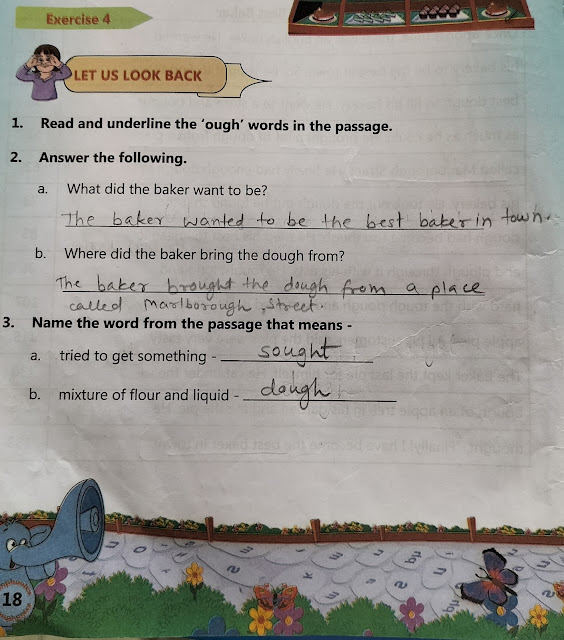 Exercise 4
LET US LOOK BACK
1. Read and underline the ‘ough’ words in the passage.
2. Answer the following.
a. What did the baker want to be?
The baker wanted to be the best baker in town.
b. Where did the baker bring the dough from?
The baker brought the dough from a place
called Marlborough Street.
3. Name the word from the passage that means -
a. tried to get something - sought
b. mixture of flour and liquid - dough
18